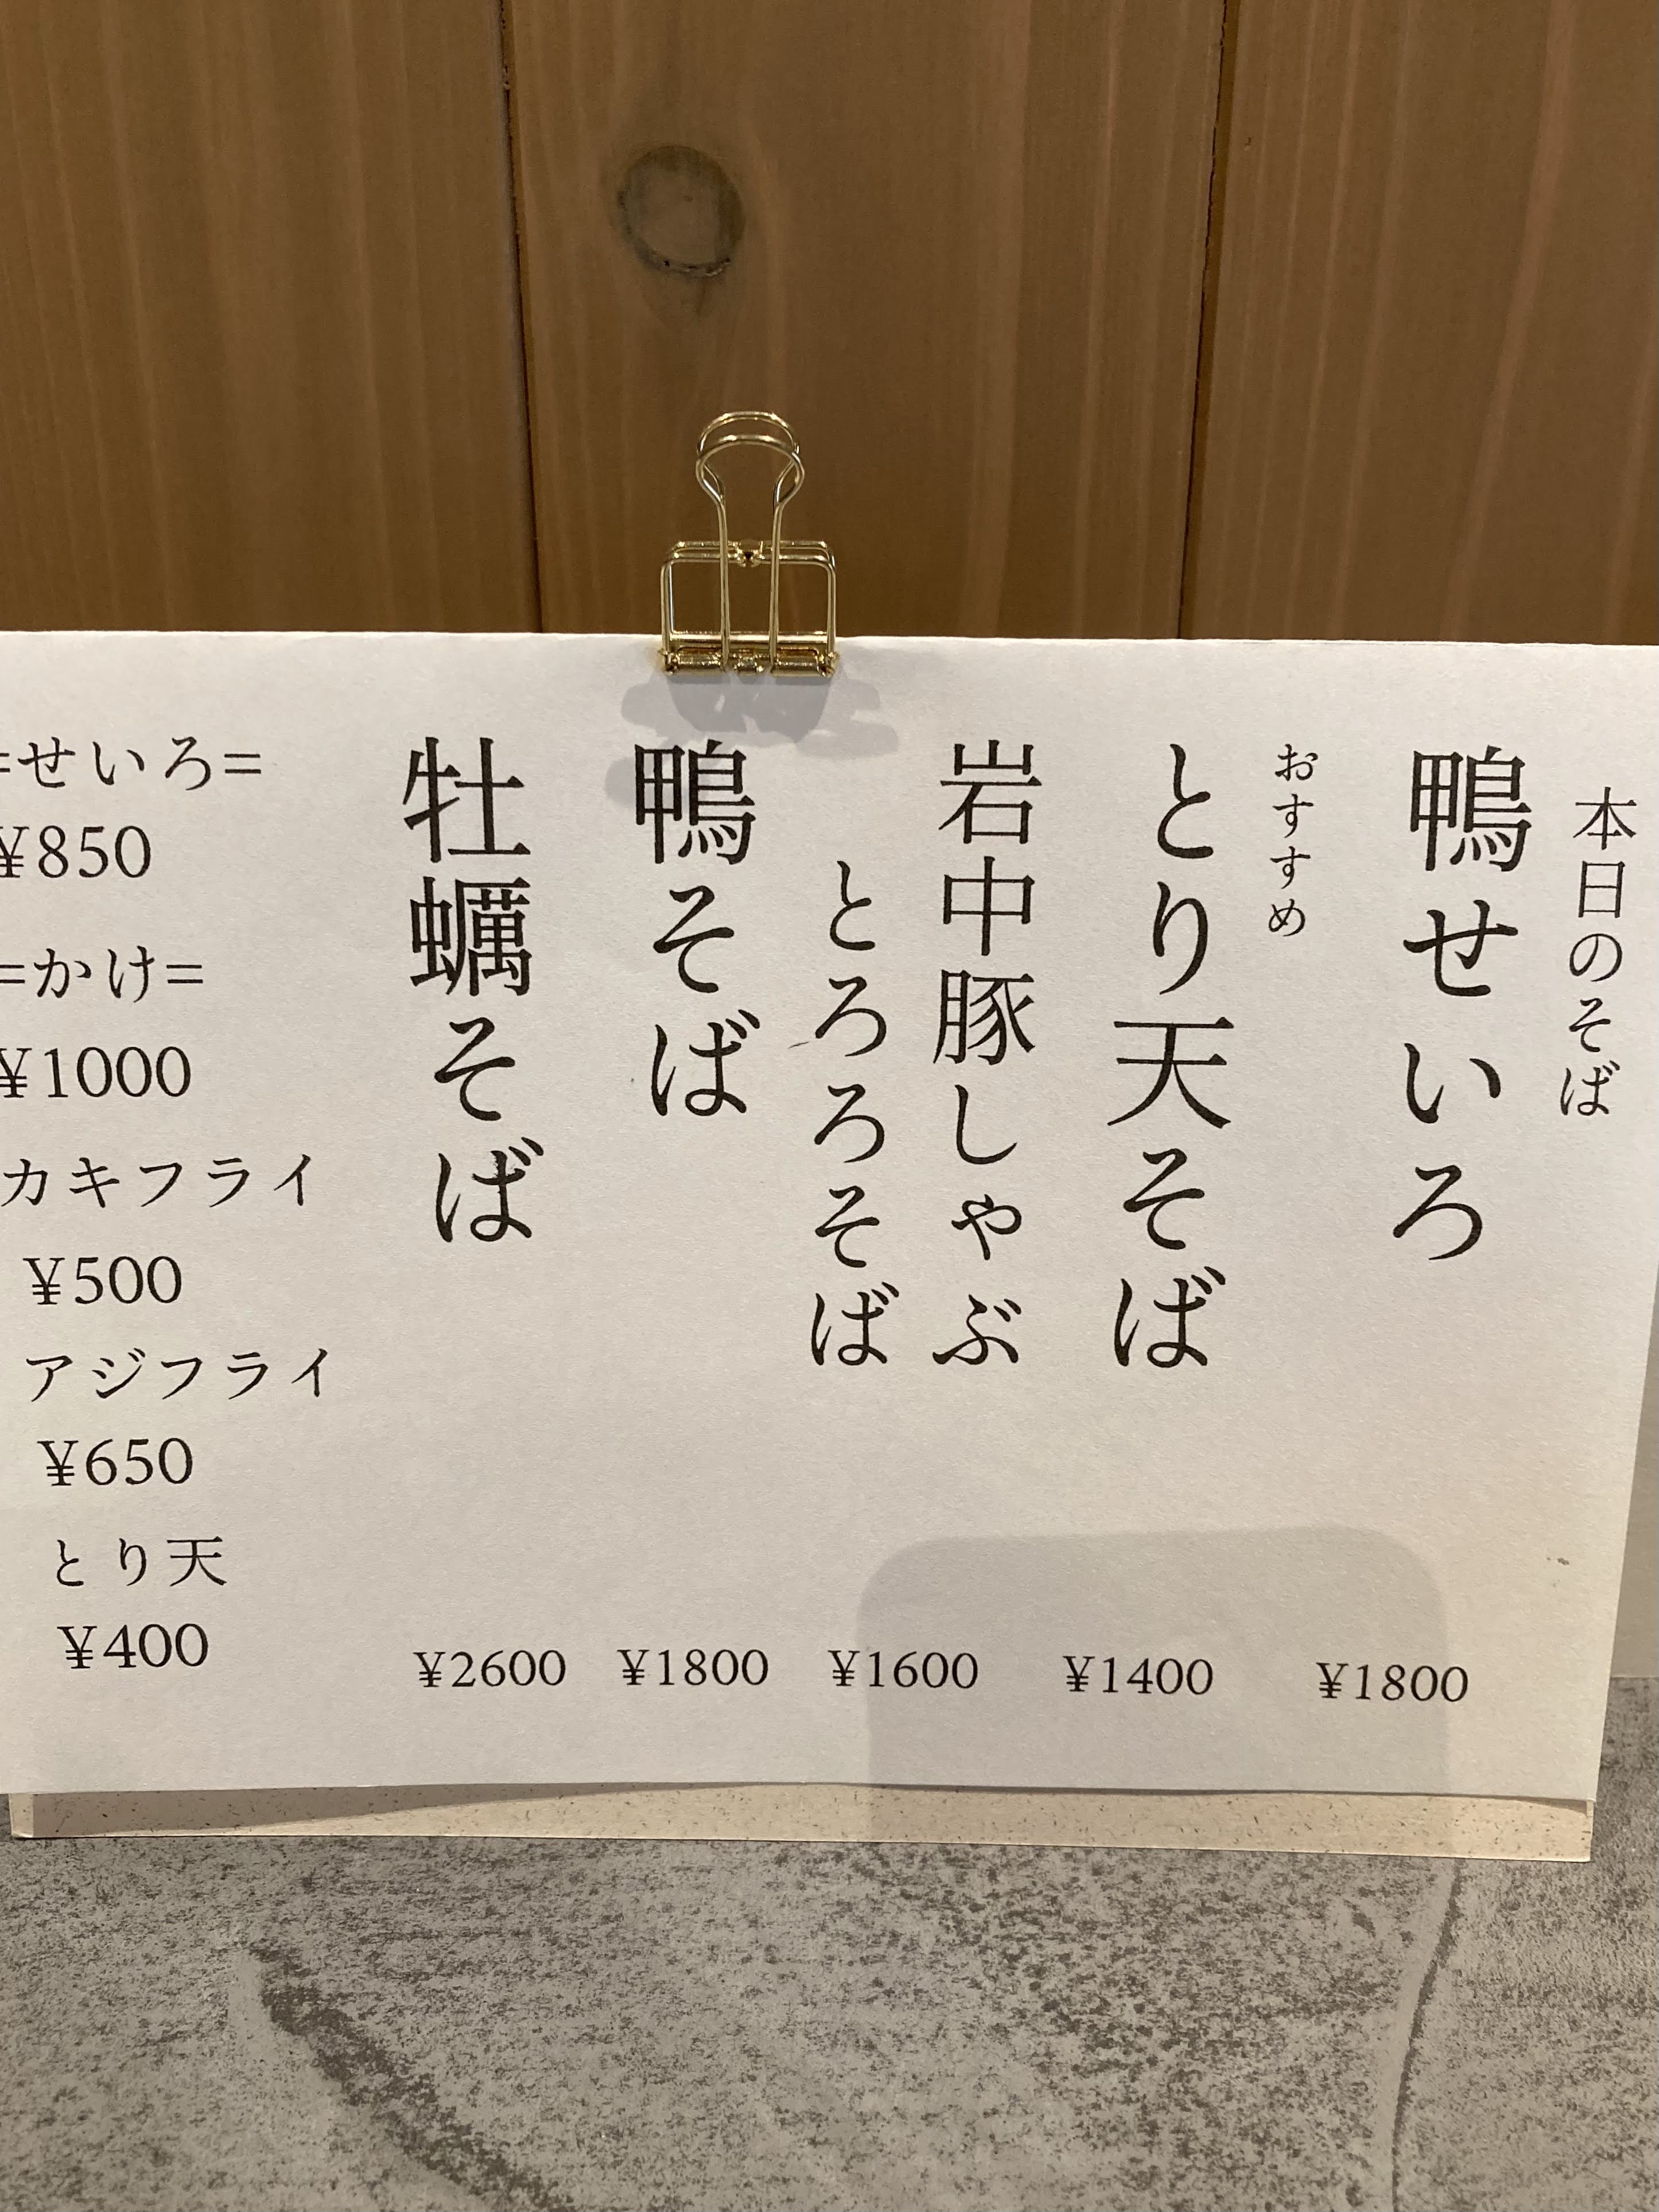 本日のそば
鴨せいろ
¥1800
おすすめ
とり天そば
¥1400
岩中豚しゃぶ
とろろそば
¥1600
鴨そば
¥1800
牡蠣そば
¥2600
=せいろ=
¥850
=かけ=
¥1000
カキフライ
¥500
アジフライ
¥650
とり天
¥400